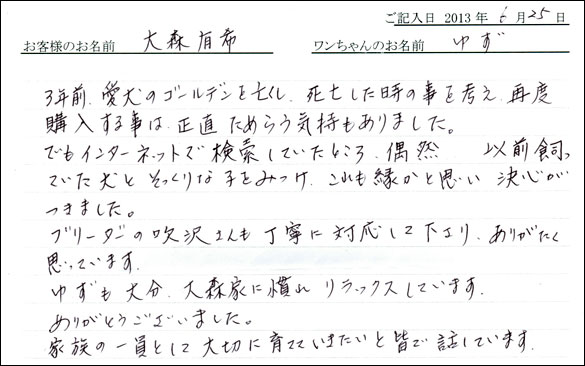 ご記入日 2013 年 6 月 25 日
お客様のお名前 大森有希 ワンちゃんのお名前 ゆず
3年前、愛犬のゴールデンを亡くし、死亡した時の事を考え、再度
購入する事は、正直ためらう気持もありました。
でもインターネットで検索していたところ、偶然 以前飼っ
ていた犬とそっくりな子をみつけ、これも縁かと思い 決心が
つきました。
ブリーダーの吹沢さんも丁寧に対応して下さり、ありがたく
思っています。
ゆずも大分、大森家に慣れ リラックスしています。
ありがとうございました。
家族の一員として大切に育てていきたいと皆で話しています。